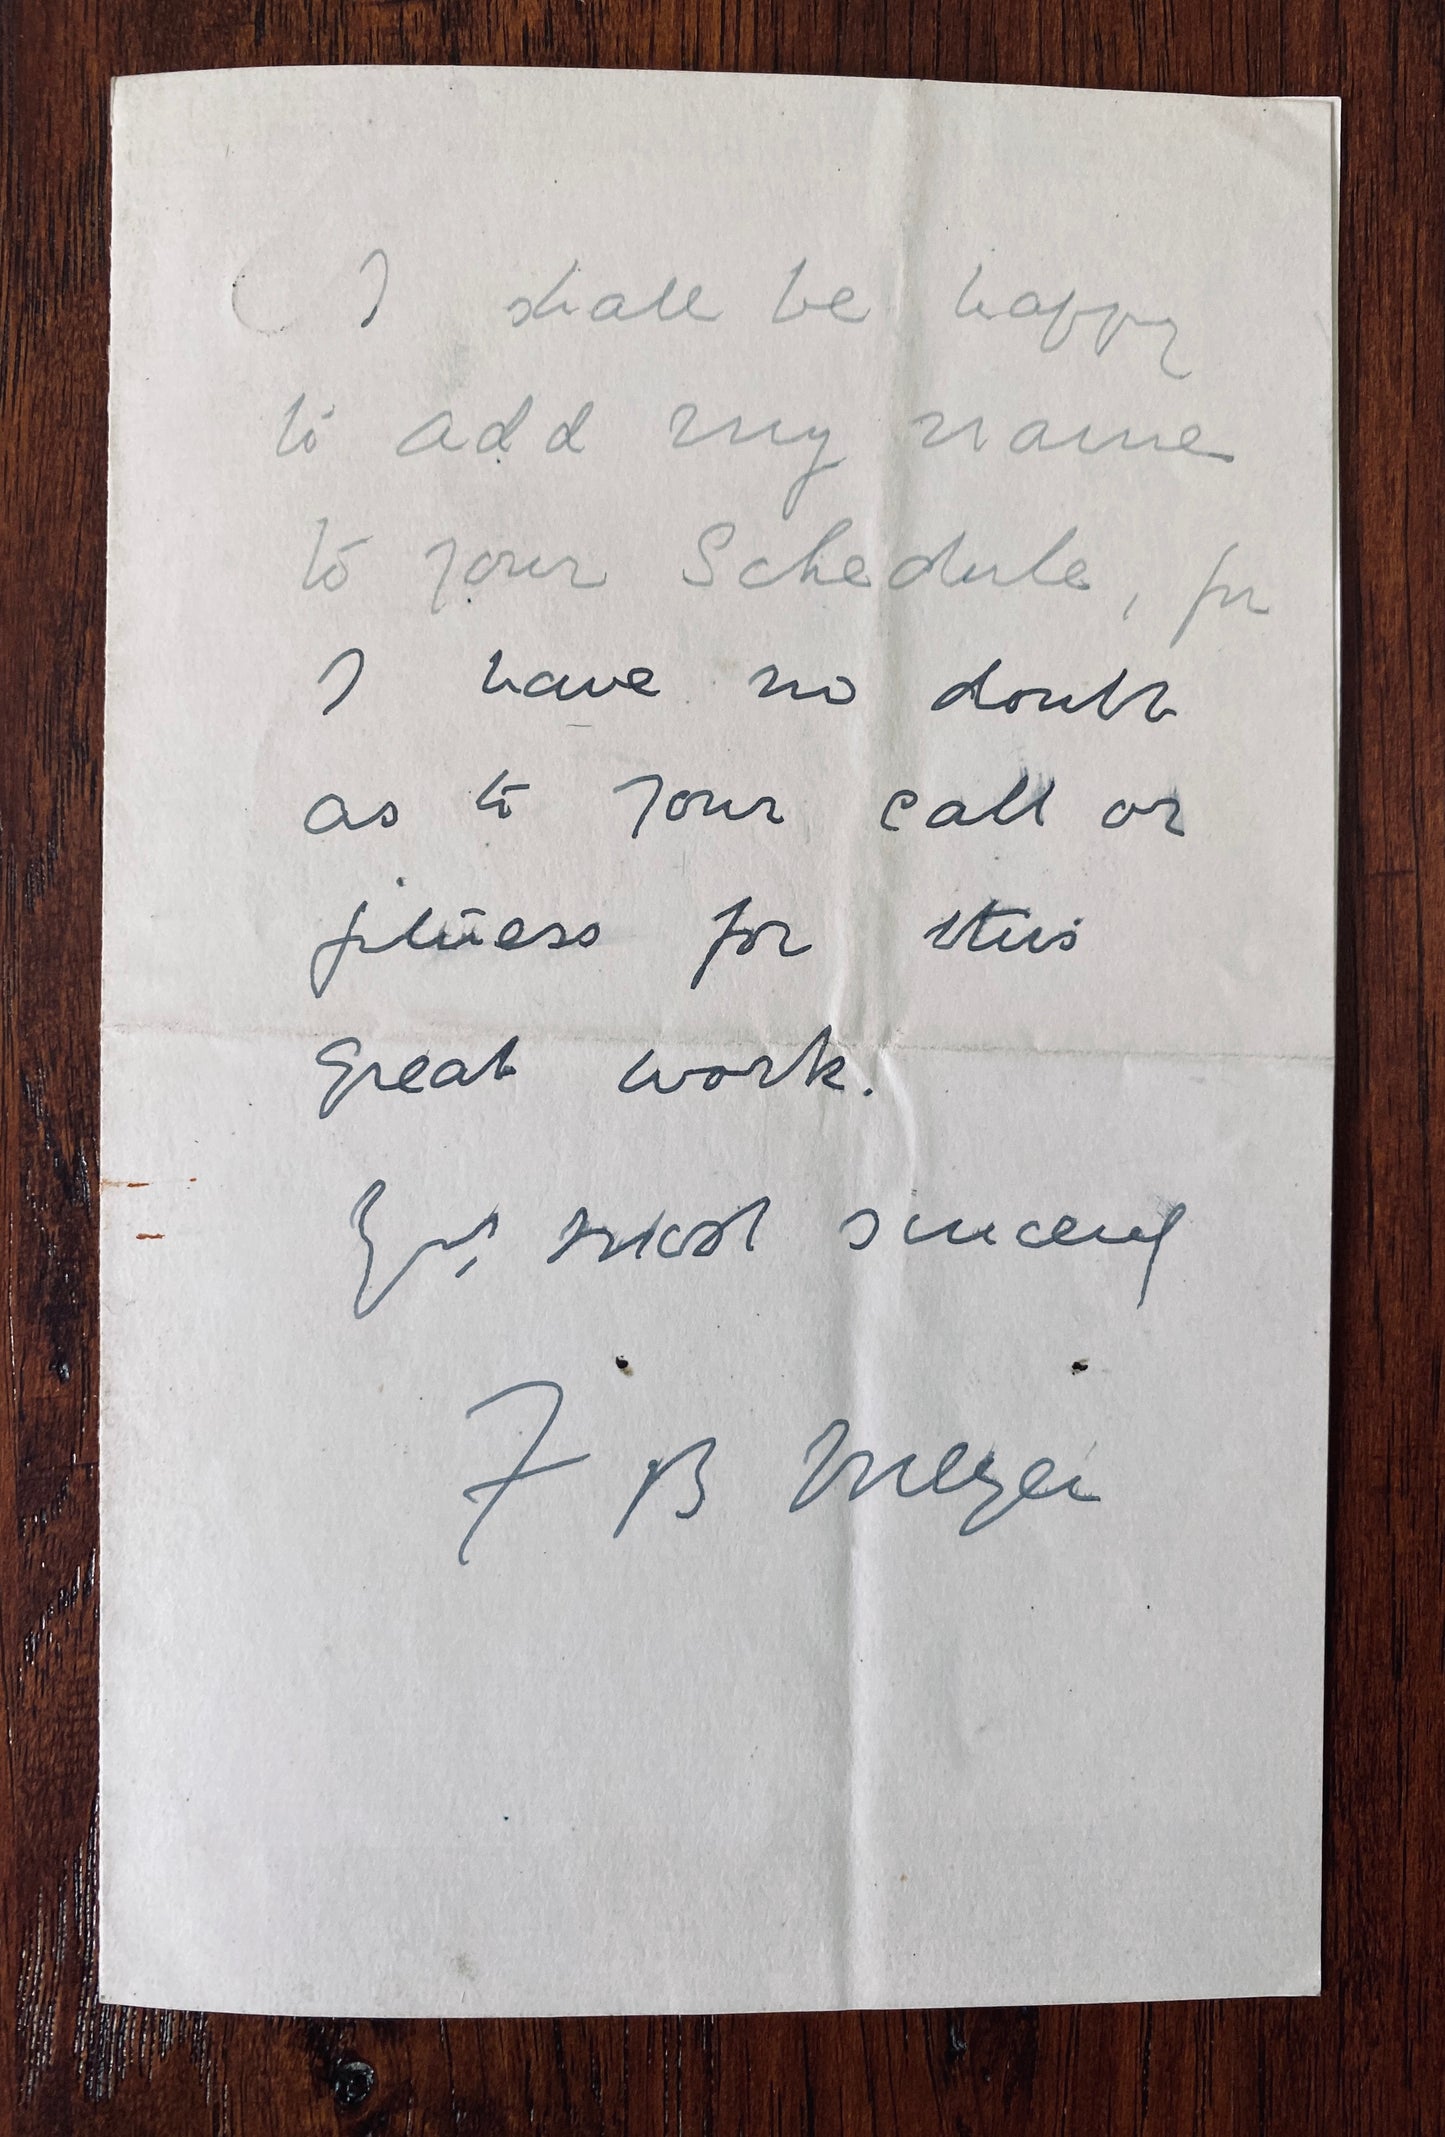 I shall be happy
to add my name
to your Schedule, for
I have no doubt
as to your call or
fitness for this
great work.
Yrs most sincerely
F B Meyer